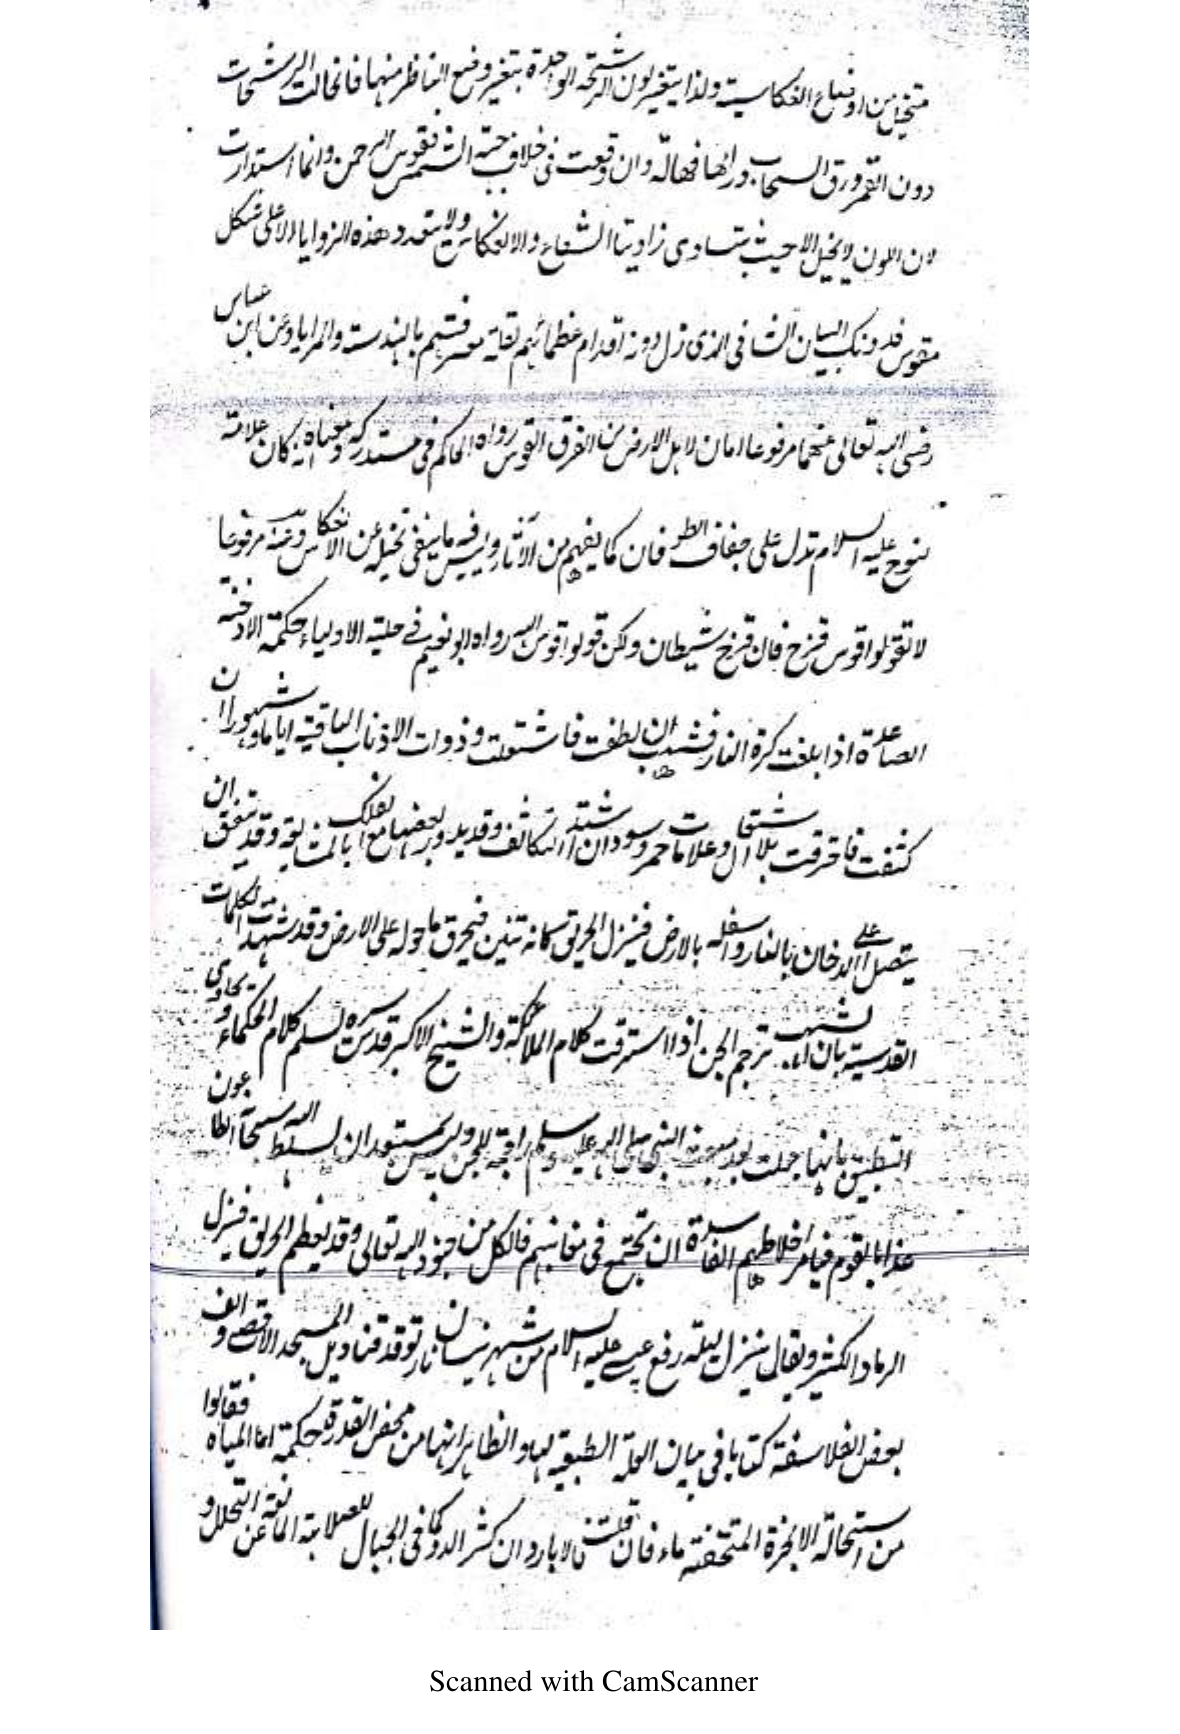 متخيل من اوضاع انعكاسية ولذا يتغير لون الرشحة الواحدة بتغير وضع الناظر منها فان خالت الرشحات
دون القمر ورق السحاب ورائها فهالة وان وقعت في خلاف جهة الشمس فقوس الرحمن وانما استدارت
لان اللون لا يخيل الا حيث تتساوى زاويتا الشعاع والانعكاس ولا تتعدد هذه الزوايا الا على شكل
مقوس فدونك البيان الشافي الذي زل دونه اقدام عظمائهم لقلة معرفتهم بالهندسة والمرايا وعن ابن عباس
رضي الله تعالى عنهما مرفوعا امان لاهل الارض من الغرق القوس رواه الحاكم في مستدركه ومعناه انه كان علامة
لنوح عليه السلام تدل على جفاف الطوفان كما يفهم من الآثار وليس فيه ما ينفي تخيله عن الانعكاس وعنه مرفوعا
لا تقولوا قوس قزح فان قزح شيطان ولكن قولوا قوس الله رواه ابو نعيم في حلية الاولياء حكمة الادخنة
الصاعدة اذا بلغت كرة النار فشهب ان لطفت فاشتعلت وذوات الاذناب الباقية اياما وشهورا ان
كثفت فاحترقت بلا اشتعال وعلامات حمر وسود ان اشتد التكاثف وقد يدور بعضها مع الفلك بالمشايعة وقد يتفق ان
يتصل اعلى الدخان بالنار واسفله بالارض فينزل الحريق كانه تنين فيحرق ما حوله على الارض وقد شهدت الكلمات
القدسية بان الشهب ترجم الجن اذا استرقت كلام الملائكة والشيخ الاكبر قدس سره يسلم كلام الحكماء و
التطبيق بانها جعلت بعد بعثة النبي صلى الله عليه وسلم راجمة للجن وليس بمستبعد ان يسلط الله سبحانه الطاعون
عذابا لقوم فيامر اخلاطهم الفاسدة ان تجتمع في مغابنهم فالكل من جنود الله تعالى وقد يعظم الحريق فينزل
الرماد الكثير ويقال ينزل ليلة رفع عيسى عليه السلام من شهر نيسان نار توقد قناديل المسجد الاقصى والف
بعض الفلاسفة كتابا في بيان العلة الطبعية لها والظاهر انها من محض القدرة حكمة اما المياه فقالوا
من استحالة الابخرة المتحقنة ماء فان قلت فالابار وان كثر المدد كما في الجبال للصلابة المانعة عن التحلل و
Scanned with CamScanner